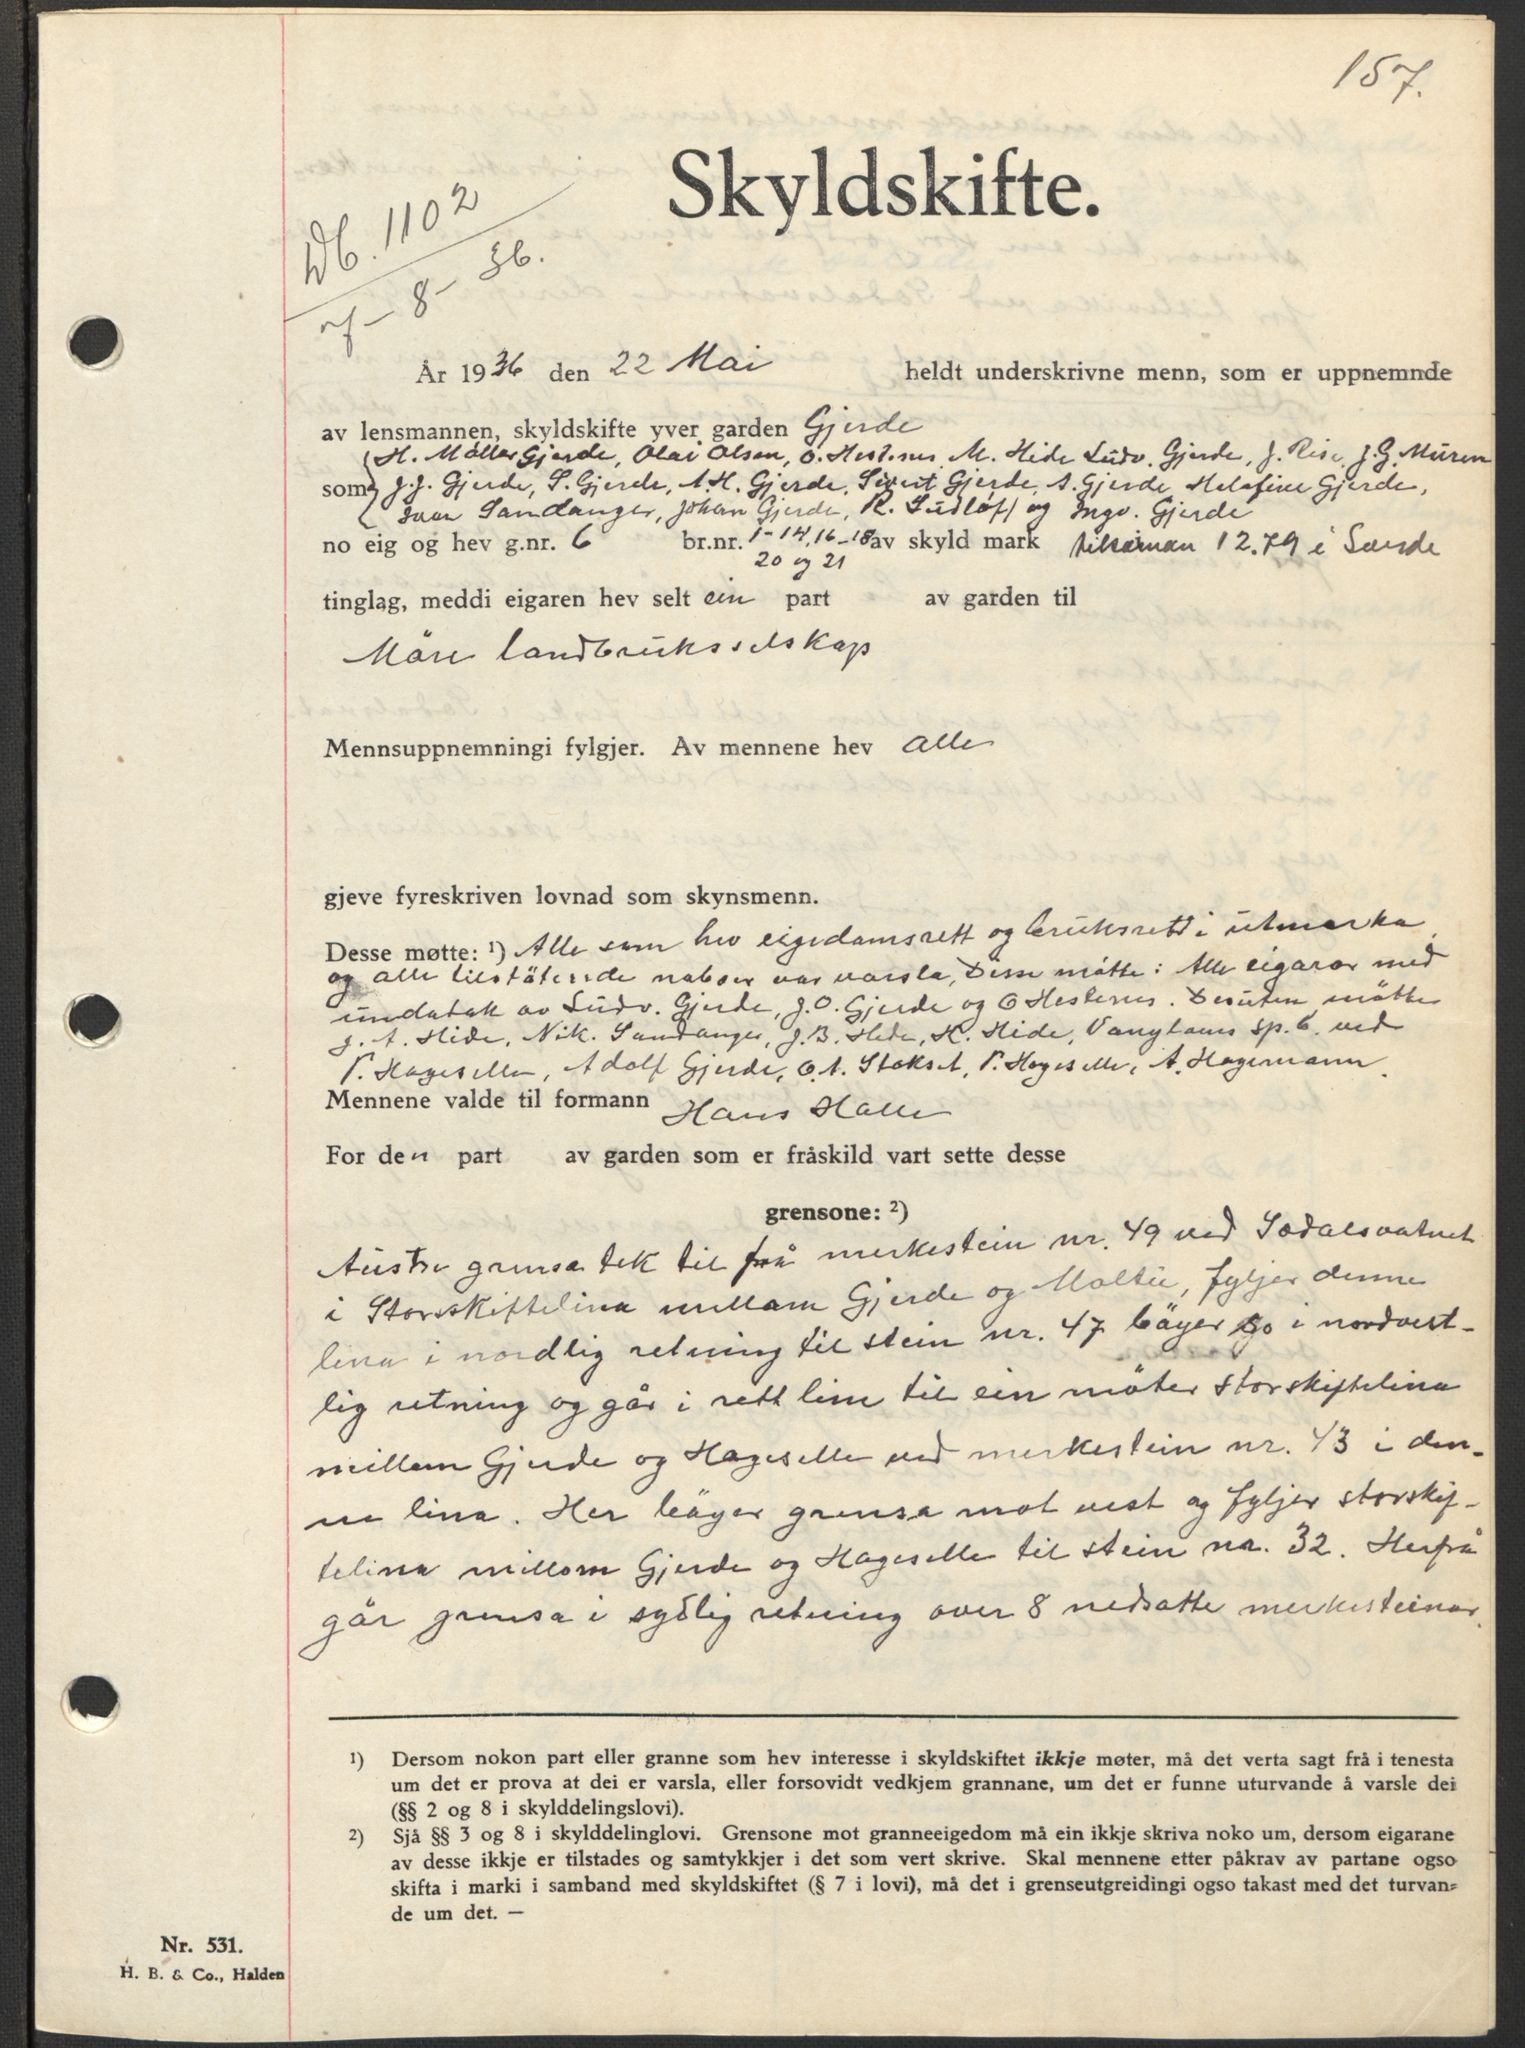 157.
Skyldskifte.
Db. 1102
8 - 36.
År 1936 den 22 Mai heldt underskrivne menn, som er uppnemnde
av lensmannen, skyldskifte yver garden Gjerde
(H. Møller Gjerde, Olai Olsen, O. Hestenes, M. Hide Ludv. Gjerde, J. Rise, J. G. Muren
som J. J. Gjerde, S. Gjerde, A. H. Gjerde, Sivert Gjerde, A. Gjerde, Gjerde,
Ivar Sandanger, Johan Gjerde, R. Sudløff og Ingv. Gjerde
no eig og hev g.nr. 6 br.nr. 1-14, 16-18 av skyld mark tilsaman 12.79 i Sande
20 og 21
tinglag, meddi eigaren hev selt ein part av garden til
Møre landbruksselskap
Mennsuppnemningi fylgjer. Av mennene hev alle
gjeve fyreskriven lovnad som skynsmenn.
Desse møtte: 1) Alle som hev eigedomsrett og bruksrett i utmarka
og alle tilstøtende naboer var varsla, Desse møtte: Alle eigarar med
undatak av Ludv. Gjerde, J. O. Gjerde og O Hestenes. Desuten møtte
J. A. Hide, Nik. Sandanger, J. B. Hide, K. Hide, Vanylvens sp.b. ved
P. Hageselle, Adolf Gjerde, O. A. Stokset, P. Hageselle, A. Hagemann.
Mennene valde til formann Hans Halle
For den part av garden som er fråskild vart sette desse
grensone: 2)
Austre grensa tek til frå merkestein nr. 49 ved Sædalsvatnet
i Storskiftelina millam Gjerde og Moltu, fyljer denne
lina i nordlig retning til stein nr. 47 bøyer so i nordvest-
lig retning og går i rett line til ein møter storskiftelina
millem Gjerde og Hageselle ved merkestein nr. 43 i den-
ne lina. Her bøyer grensa mot vest og fyljer storskif-
telina millom Gjerde og Hageselle til stein nr. 32. Herfrå
går grensa i sydlig retning over 8 nedsatte merkesteinar.
1) Dersom nokon part eller granne som hev interesse i skyldskiftet ikkje møter, må det verta sagt frå i tenesta
um det er prova at dei er varsla, eller forsovidt vedkjem grannane, um det er funne uturvande å varsle dei
(§§ 2 og 8 i skylddelingslovi).
2) Sjå §§ 3 og 8 i skylddelinglovi. Grensone mot granneeigedom må ein ikkje skriva noko um, dersom eigarane
av desse ikkje er tilstades og samtykkjer i det som vert skrive. Skal mennene etter påkrav av partane ogso
skifta i marki i samband med skyldskiftet (§ 7 i lovi), må det i grenseutgreidingi ogso takast med det turvan=
de um det. —
Nr. 531.
H. B. & Co., Halden